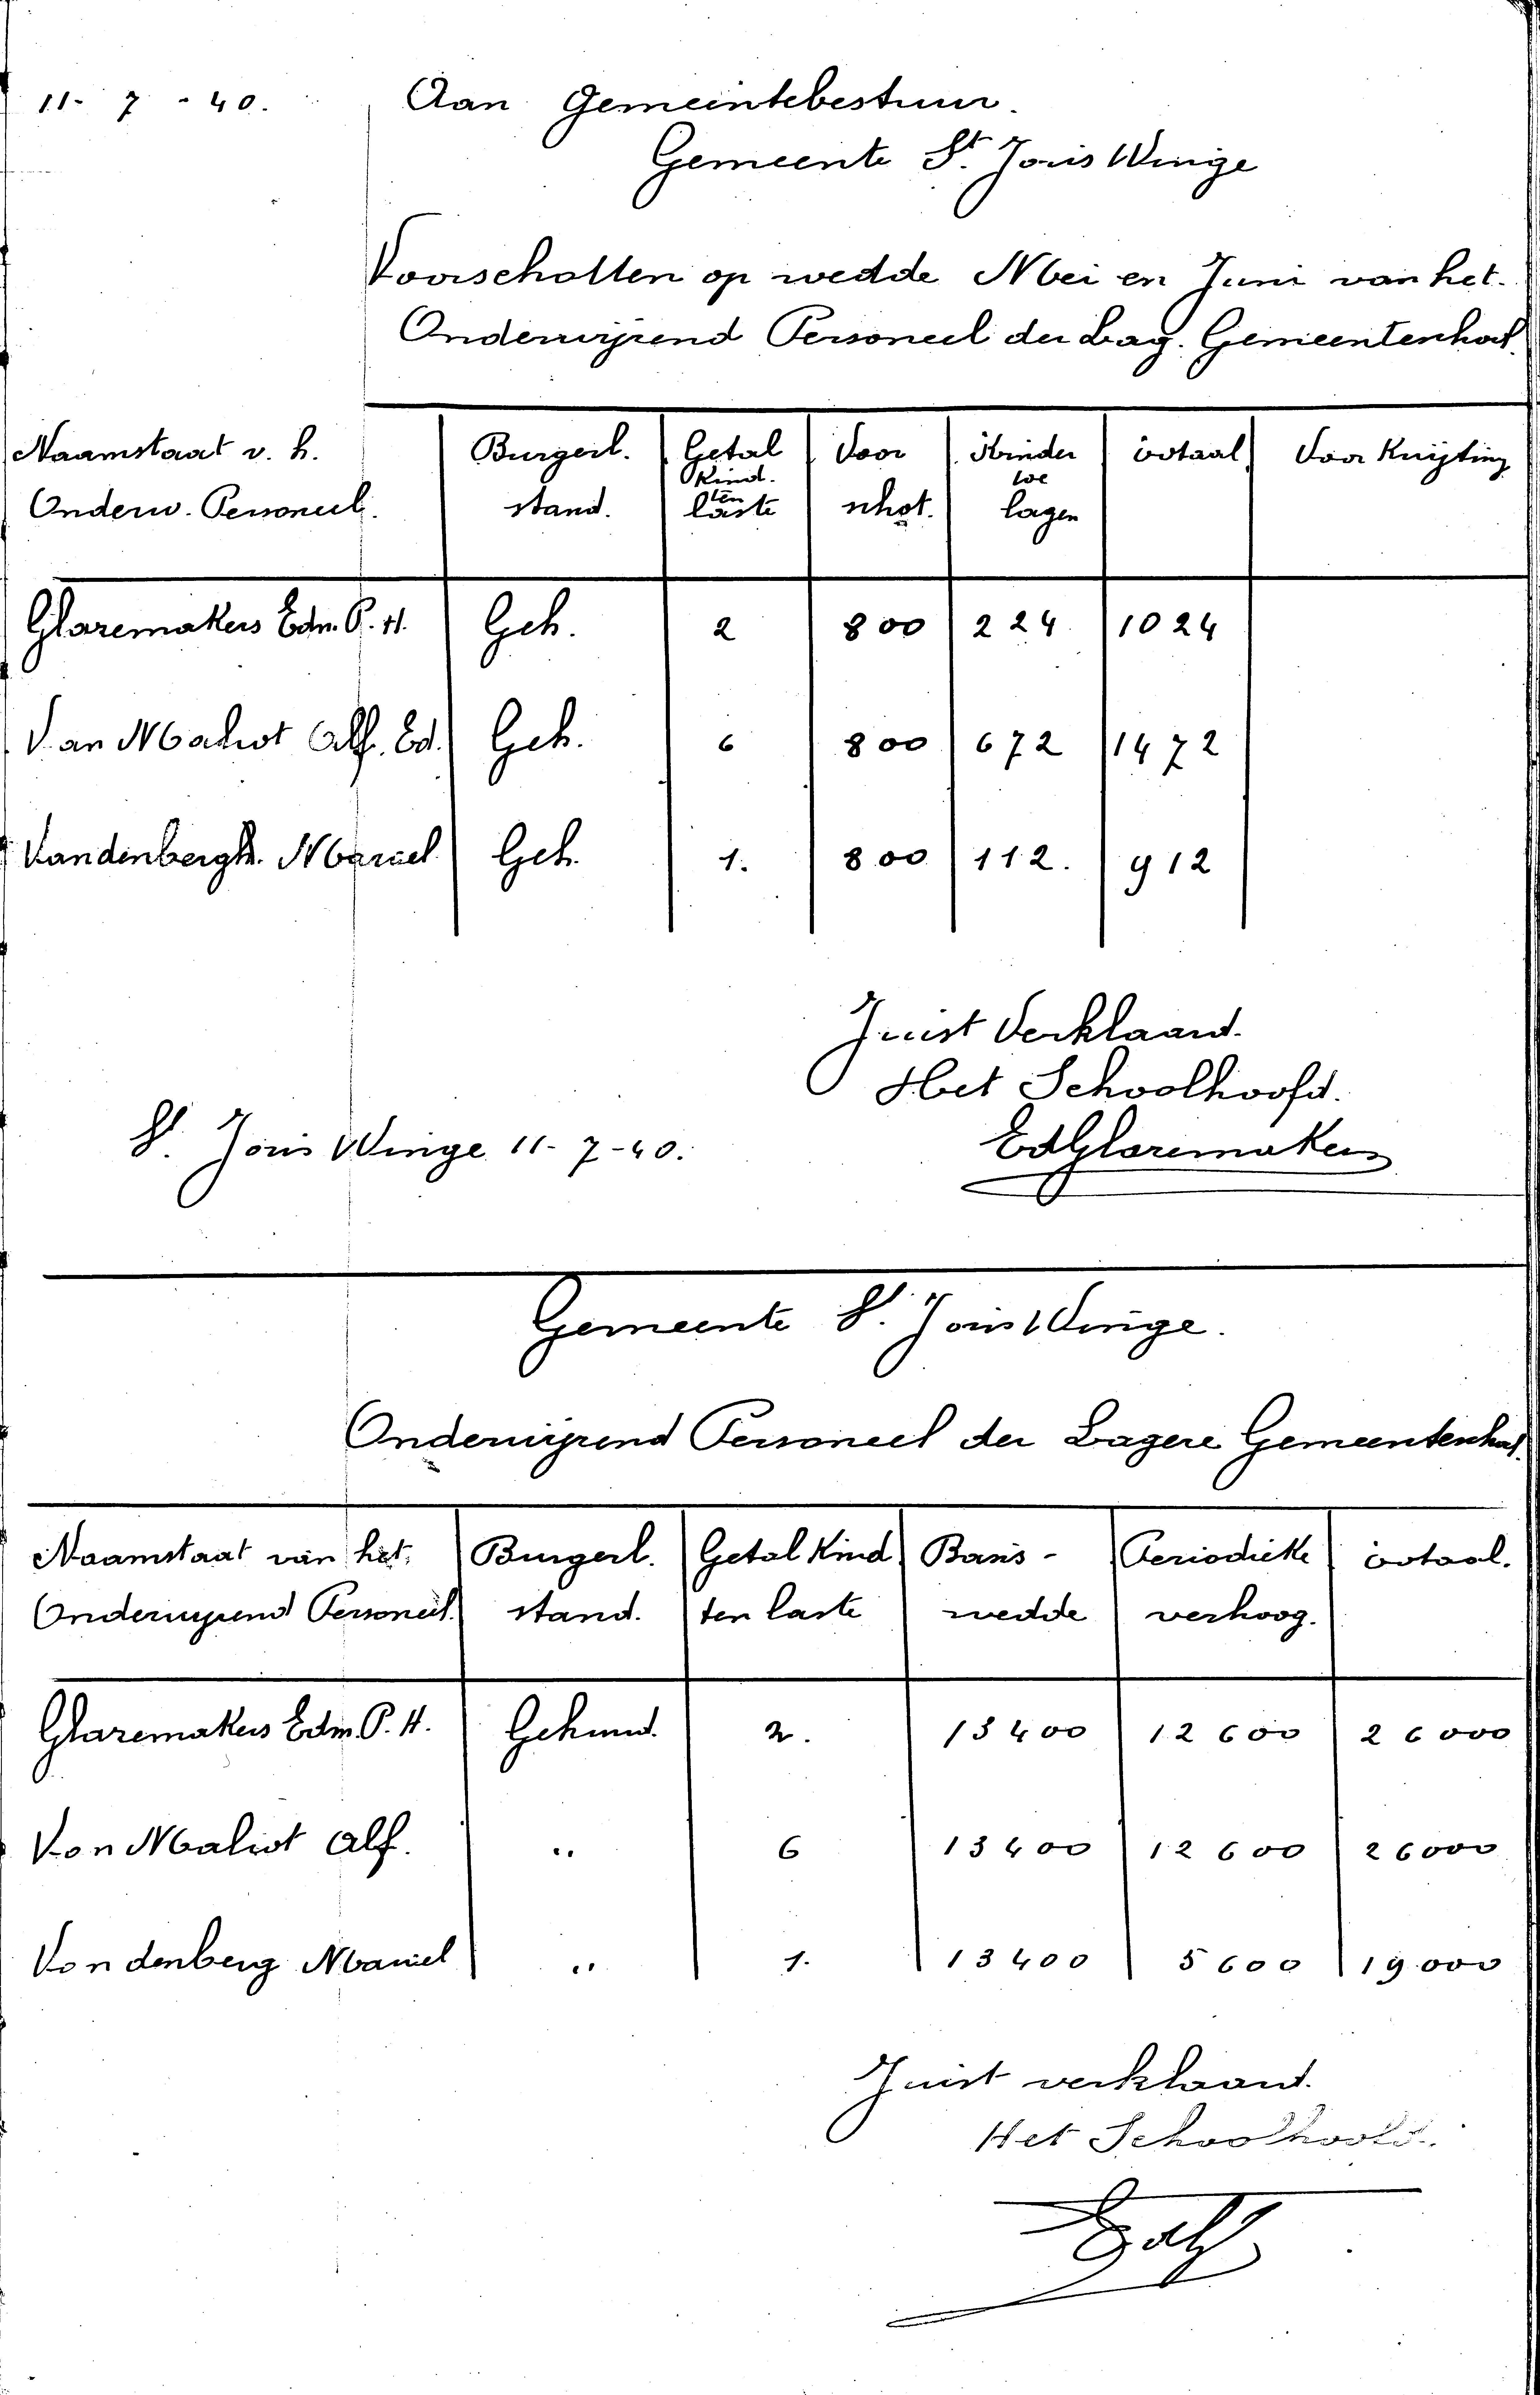 11- 7 - 40.
Aan Gemeentebestuur.
Gemeente St. Joris Winge
Voorschotten op wedde Mei en Juni van het
Onderwijzend Personeel der Lag. Gemeenteschool.
Naamstaat v. h. Onderw. Personeel. | Burgerl. stand. | Getal Kind. ten laste | Voor schot. | Kinder toe lagen | Totaal | Voor Kwijting
Glazemakers Edm. P. H. | Geh. | 2 | 800 | 224 | 1024
Van Maliot Alf. Ed. | Geh. | 6 | 800 | 672 | 1472
Vandenbergh. Marcel | Geh. | 1. | 800 | 112. | 912
Juist Verklaard.
Het Schoolhoofd.
EdGlazemakers
St. Joris Winge 11- 7-40.
Gemeente St. Joris Winge.
Onderwijzend Personeel der Lagere Gemeenteschool.
Naamstaat van het Onderwijzend Personeel. | Burgerl. stand. | Getal Kind ten laste | Basis- wedde | Periodieke verhoog. | Totaal.
Glazemakers Edm. P. H. | Gehuwd. | 2. | 13400 | 12600 | 26000
Van Maliot Alf. | " | 6 | 13400 | 12600 | 26000
Vandenberg Marcel | " | 1. | 13400 | 5600 | 19000
Juist verklaard.
Het Schoolhoofd.